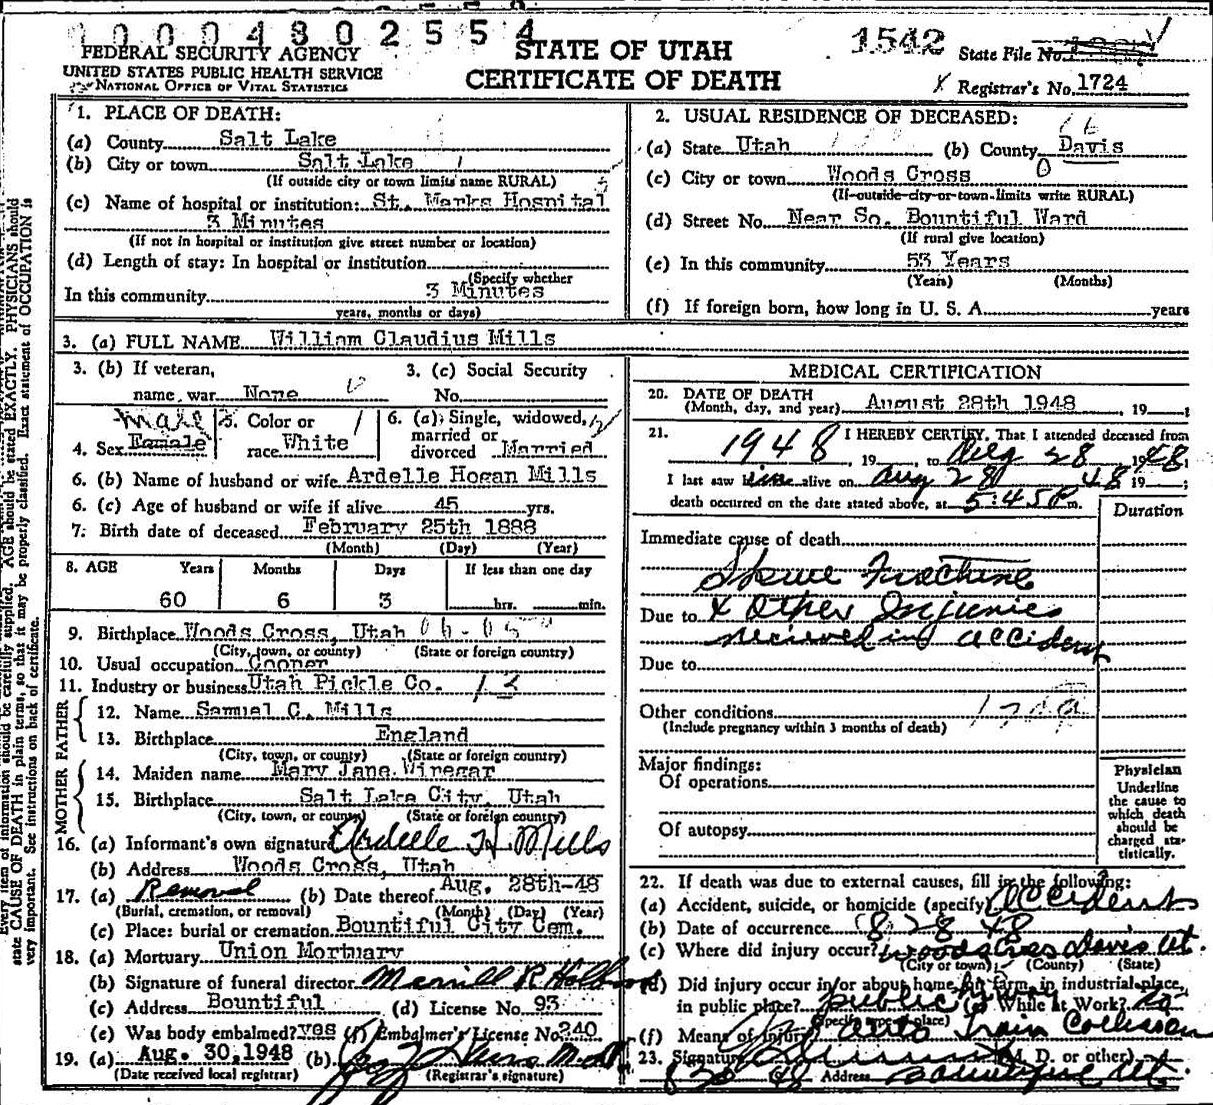 0004802554
FEDERAL SECURITY AGENCY
UNITED STATES PUBLIC HEALTH SERVICE
NATIONAL OFFICE OF VITAL STATISTICS
STATE OF UTAH
CERTIFICATE OF DEATH
1542 State File No.
X Registrar's No. 1724
1. PLACE OF DEATH:
(a) County Salt Lake
(b) City or town Salt Lake
(If outside city or town limits name RURAL)
(c) Name of hospital or institution: St. Marks Hospital
3 Minutes
(If not in hospital or institution give street number or location)
(d) Length of stay: In hospital or institution
(Specify whether
In this community 3 Minutes
years, months or days)
2. USUAL RESIDENCE OF DECEASED:
(a) State Utah (b) County Davis
(c) City or town Woods Cross
(If outside city or town limits write RURAL)
(d) Street No. Near So. Bountiful Ward
(If rural give location)
(e) In this community 53 Years
(Years) (Months)
(f) If foreign born, how long in U. S. A. years
3. (a) FULL NAME William Claudius Mills
3. (b) If veteran,
name war None
3. (c) Social Security
No.
4. Sex Female male
5. Color or
race White
6. (a) Single, widowed,
married or
divorced Married
6. (b) Name of husband or wife Ardelle Hogan Mills
6. (c) Age of husband or wife if alive 45 yrs.
7. Birth date of deceased February 25th 1888
(Month) (Day) (Year)
8. AGE Years Months Days If less than one day
60 6 3 hrs. min.
9. Birthplace Woods Cross, Utah
(City, town, or county) (State or foreign country)
10. Usual occupation Cooper
11. Industry or business Utah Pickle Co.
FATHER
12. Name Samuel C. Mills
13. Birthplace England
(City, town, or county) (State or foreign country)
MOTHER
14. Maiden name Mary Jane Winegar
15. Birthplace Salt Lake City, Utah
(City, town, or county) (State or foreign country)
16. (a) Informant's own signature Ardelle H Mills
(b) Address Woods Cross, Utah
17. (a) Removal (b) Date thereof Aug. 28th-48
(Burial, cremation, or removal) (Month) (Day) (Year)
(c) Place: burial or cremation Bountiful City Cem.
18. (a) Mortuary Union Mortuary
(b) Signature of funeral director Merrill R Holbrook
(c) Address Bountiful (d) License No. 93
(e) Was body embalmed? yes (f) Embalmer's License No. 240
19. (a) Aug. 30, 1948 (b)
(Date received local registrar) (Registrar's signature)
MEDICAL CERTIFICATION
20. DATE OF DEATH
(Month, day, and year) August 28th 1948, 19
21. I HEREBY CERTIFY, That I attended deceased from
1948, 19 , to Aug 28 1948
I last saw him alive on Aug 28 48 19 ;
death occurred on the date stated above, at 5:45 P m.
Duration
Immediate cause of death
Fracture
Due to & Other Injuries
recieved in accident
Due to
Other conditions
(Include pregnancy within 3 months of death)
Major findings:
Of operations
Of autopsy
Physician
Underline
the cause to
which death
should be
charged sta-
tistically.
22. If death was due to external causes, fill in the following:
(a) Accident, suicide, or homicide (specify) Accident
(b) Date of occurrence 8 28 48
(c) Where did injury occur? Woods Cross Davis Ut.
(City or town) (County) (State)
(d) Did injury occur in or about home, on farm, in industrial place,
in public place? public While at Work? no
(Specify type of place)
(f) Means of injury auto Train Collision
23. Signature (M. D. or other)
8 30 48 Address Bountiful Ut.
Every item of information should be carefully supplied. AGE should be stated EXACTLY. PHYSICIANS should
state CAUSE OF DEATH in plain terms, so that it may be properly classified. Exact statement of OCCUPATION is
very important. See instructions on back of certificate.